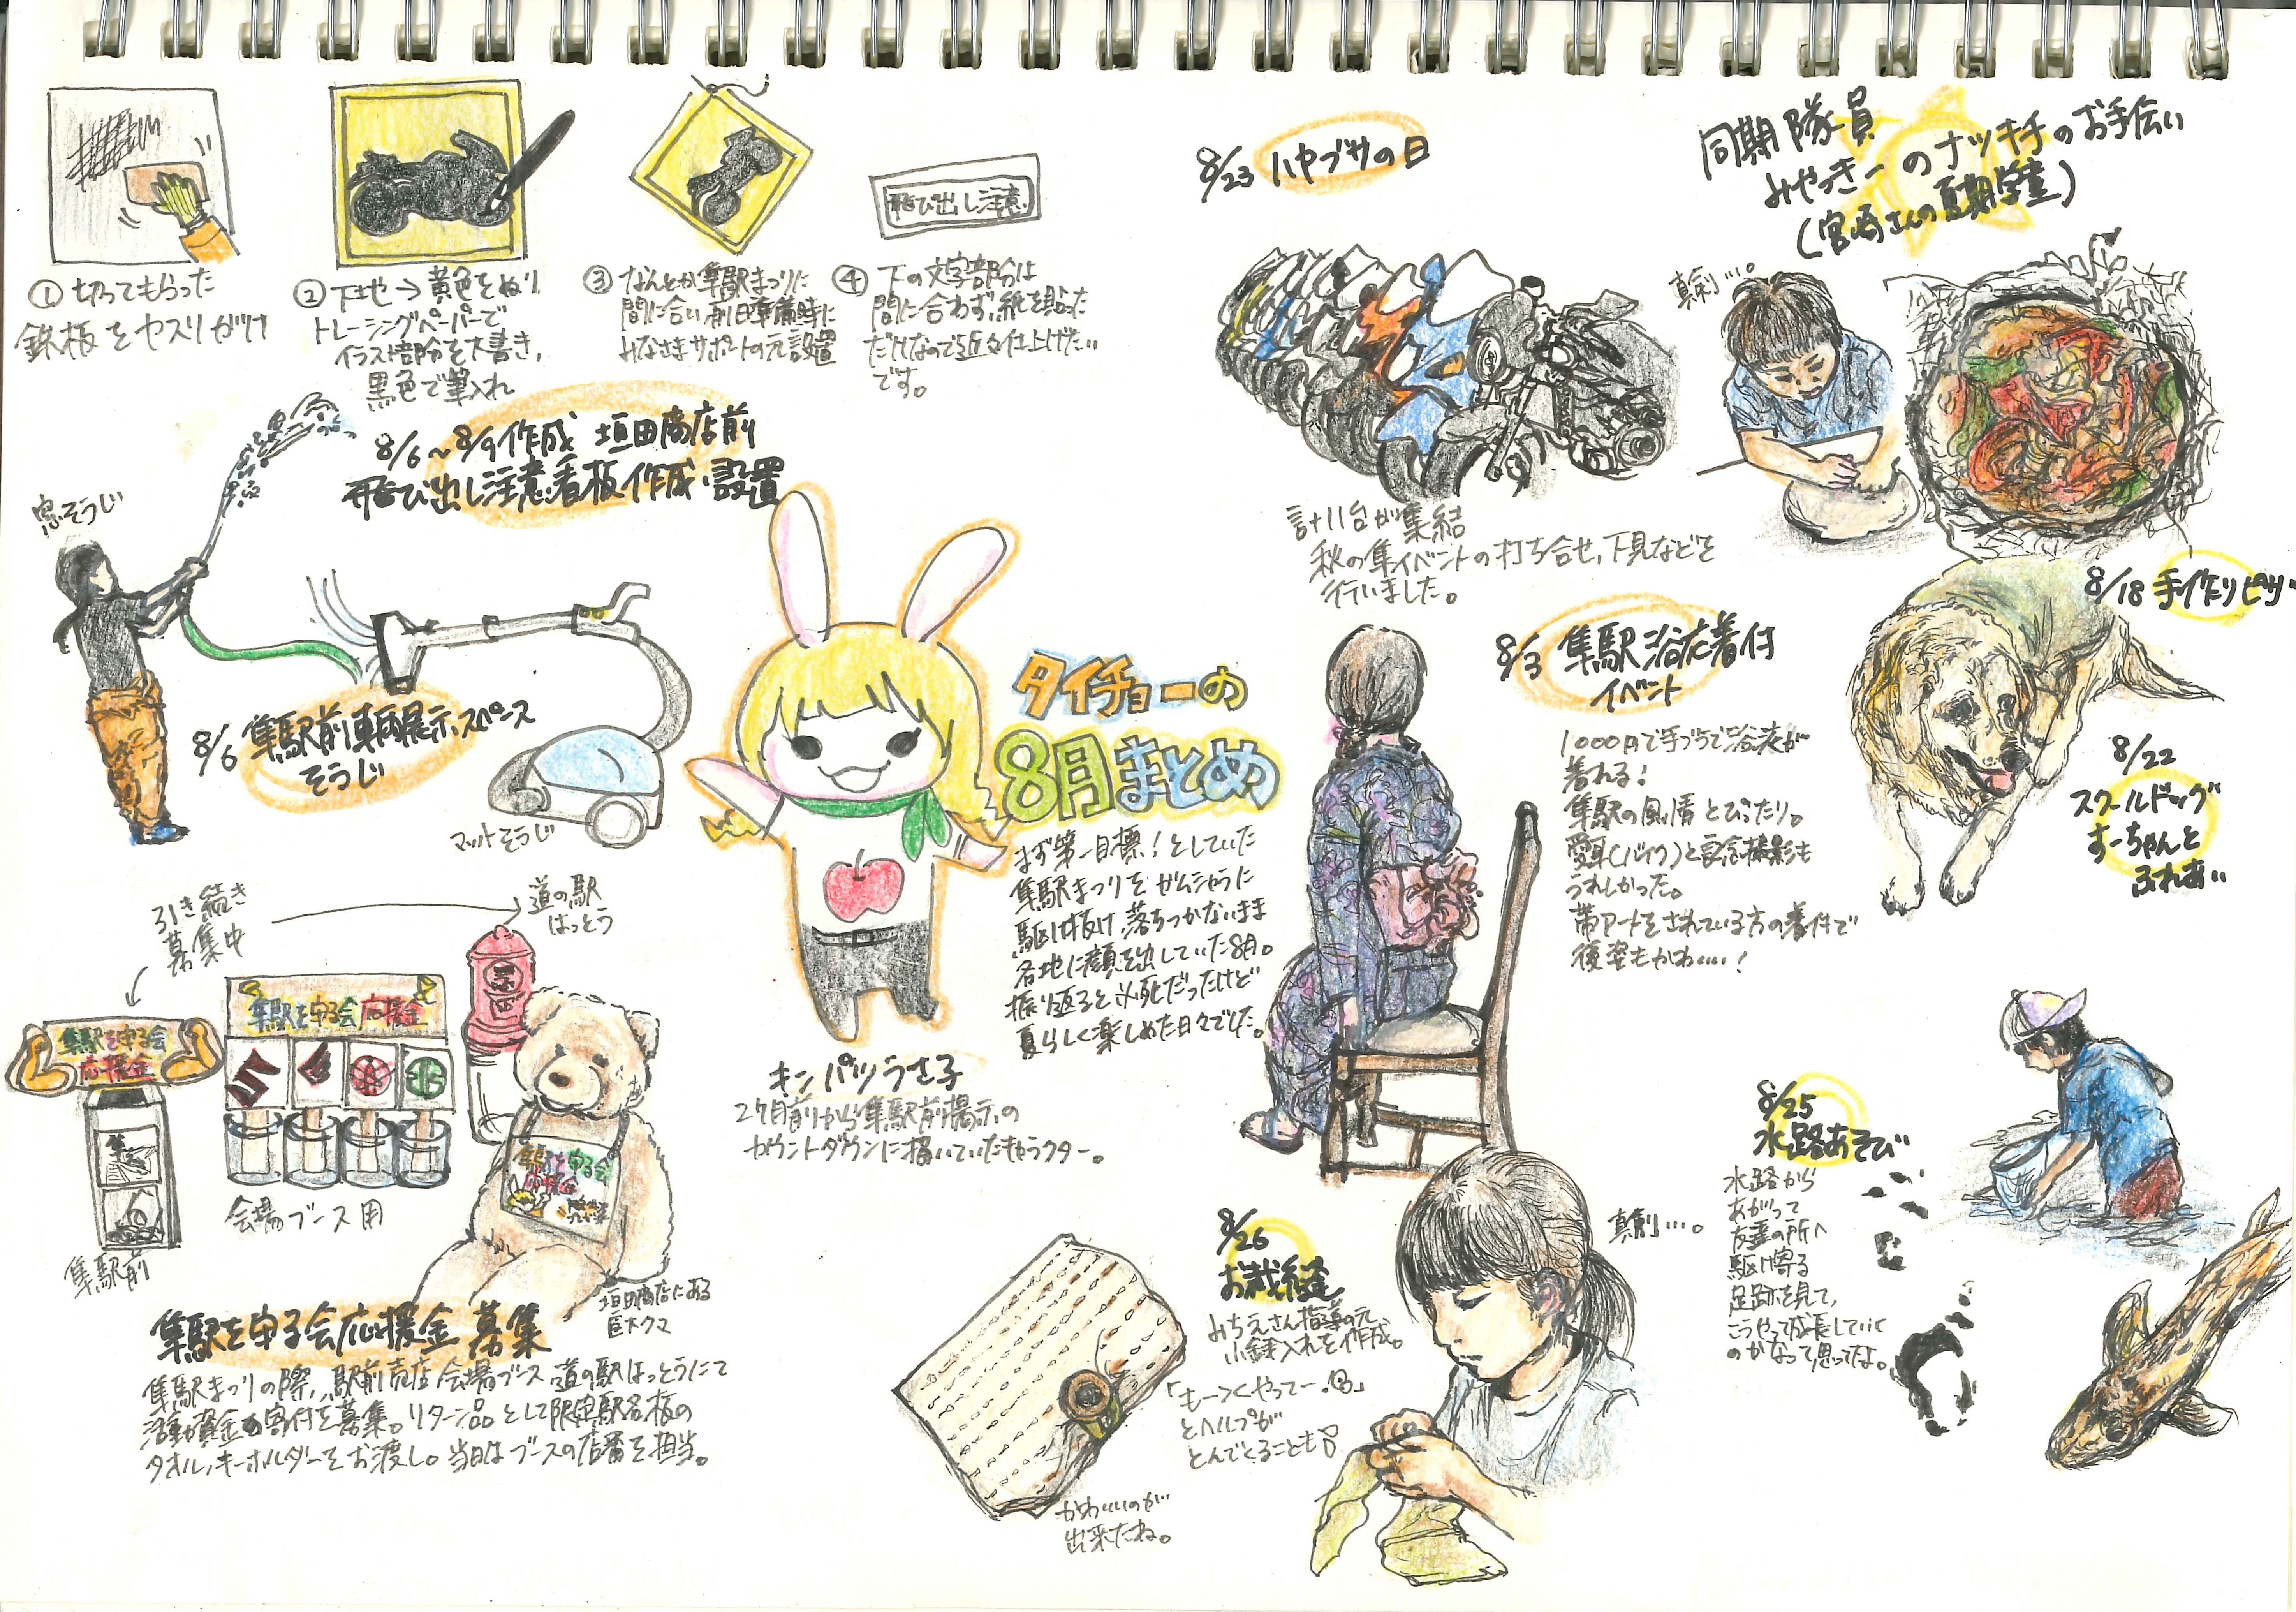 ① 切ってもらった
鉄板をヤスリがけ
② 下地→黄色をぬり
トレーシングペーパーで
イラスト部分を下書き、
黒色で筆入れ
③ なんとか隼駅まつりに
間に合い前日準備時に
みなさまサポートの元設置
飛び出し注意
④ 下の文字部分は
間に合わず、紙を貼った
だけなので近々仕上げたい
です。
8/6~8/9作成 垣田商店前
飛び出し注意看板作成・設置
窓そうじ
8/6 隼駅前車両展示スペース
そうじ
マットそうじ
引き続き
募集中
道の駅
はっとう
隼駅を守る会
応援金
隼駅を守る会応援金
隼駅を守る会
応援金
隼駅前
会場ブース用
垣田商店にある
巨大クマ
隼駅を守る会応援金 募集
隼駅まつりの際、駅前売店 会場ブース 道の駅はっとうにて
活動資金の寄付を募集。リターン品として限定駅名板の
タオル、キーホルダーをお渡し。当日はブースの店番を担当。
タイチョーの
8月まとめ
まず第一目標!としていた
隼駅まつりをガムシャラに
駆け抜け、落ちつかないまま
各地に顔を出していた8月。
振り返ると必死だったけど
夏らしく楽しめた日々でした。
キンパツうさ子
2ヶ月前から隼駅前掲示の
カウントダウンに描いていたキャラクター。
8/23 ハヤブサの日
計11台が集結
秋の隼イベントの打ち合せ、下見などを
行いました。
8/3 隼駅浴衣着付
イベント
1000円で手ぶらで浴衣が
着れる!
隼駅の風情とぴったり。
愛車(バイク)と記念撮影も
うれしかった。
帯アートをされている方の着付で
後姿もかわいい!
同期隊員
みやっきーのナツキチのお手伝い
(宮崎さんの夏期学童)
真剣…。
8/18 手作りピザ
8/22
スクールドッグ
すーちゃんと
ふれあい
8/25
水路あそび
水路から
あがって
友達の所へ
駆け寄る
足跡を見て、
こうやって成長していく
のかなって思ってたよ。
8/26
お裁縫
みちえさん指導の元
小銭入れを作成。
「もーつくやってー。」
とヘルプが
とんでくることも
真剣…。
かわいいのが
出来たね。